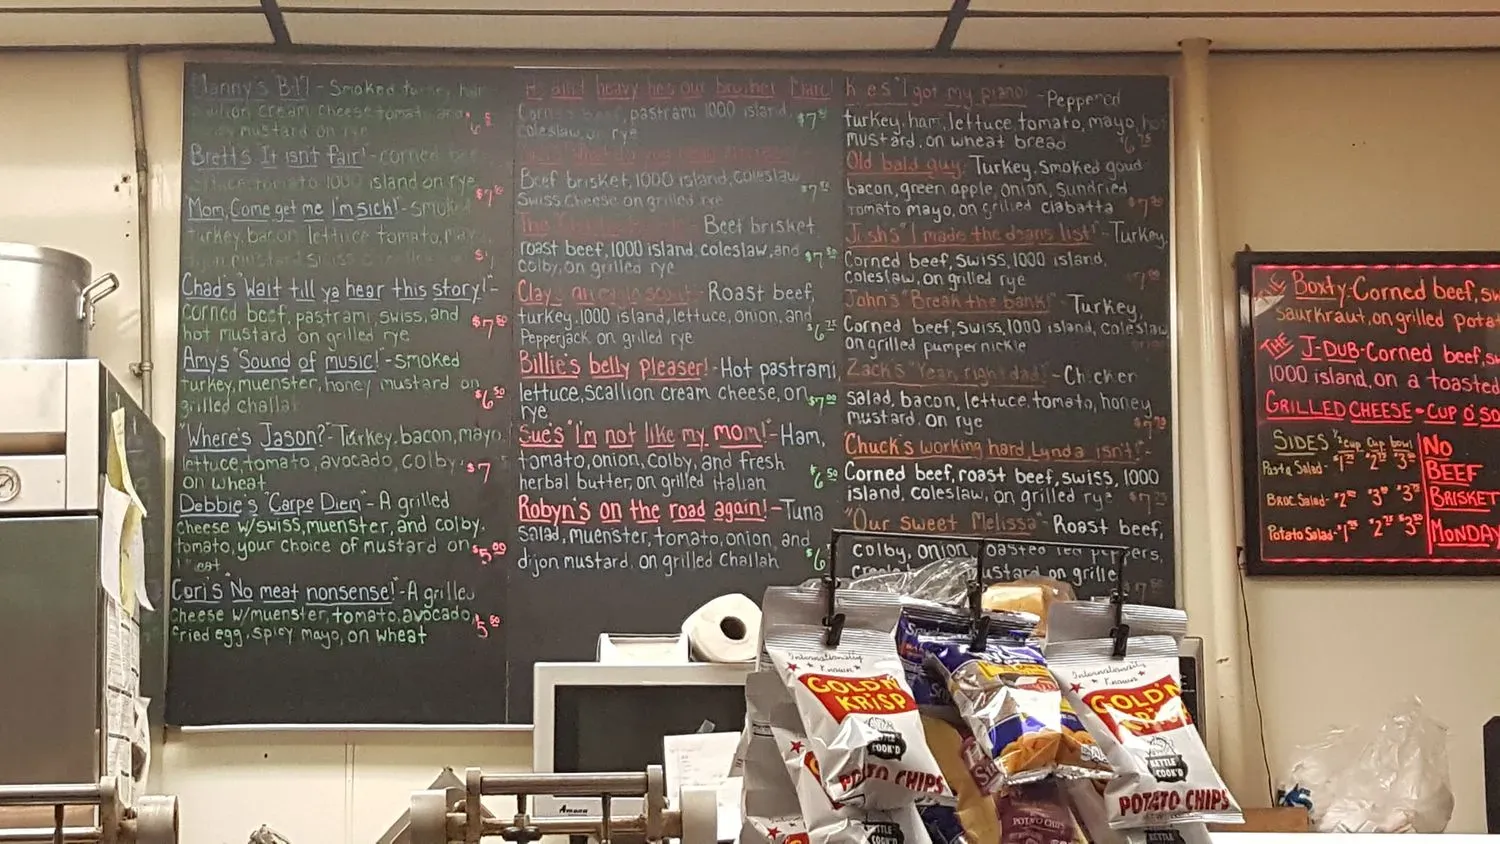 Manny's B.I.T - Smoked turkey, ham
scallion cream cheese, tomato and
mustard on rye
Brett's It isn't fair! - corned
tomato 1000 island on rye $7
Mom, Come get me I'm sick! - smoked
turkey, bacon, lettuce, tomato, mayo
dijon mustard swiss
Chad's "Wait till ya hear this story!" -
corned beef, pastrami, swiss, and
hot mustard on grilled rye $7 50
Amy's "Sound of music!" - smoked
turkey, muenster, honey mustard on
grilled challah $6 50
"Where's Jason?" - Turkey, bacon, mayo
lettuce, tomato, avocado, colby
on wheat $7
Debbie's "Carpe Diem" - A grilled
cheese w/swiss, muenster, and colby.
tomato, your choice of mustard on $5 00
Cori's "No meat nonsense!" - A grilled
cheese w/muenster, tomato, avocado,
fried egg, spicy mayo, on wheat $5 50
ain't heavy hes our brother Marc!
pastrami 1000 island,
coleslaw, on rye $7
Beef brisket, 1000 island, coleslaw
Swiss cheese on grilled rye $7
The - Beef brisket
roast beef, 1000 island, coleslaw, and
colby, on grilled rye $7
Clay's - Roast beef,
turkey, 1000 island, lettuce, onion, and
Pepperjack on grilled rye $6 75
Billie's belly pleaser! - Hot pastrami,
lettuce, scallion cream cheese, on $7 00
rye
Sue's "I'm not like my MOM!" - Ham,
tomato, onion, colby, and fresh
herbal butter, on grilled italian $6 50
Robyn's on the road again! - Tuna
salad, muenster, tomato, onion, and
dijon mustard, on grilled Challah $6
"I got my piano! - Peppered
turkey, ham, lettuce, tomato, mayo, hot
mustard, on wheat bread $6 75
Old bald guy - Turkey, Smoked gouda
bacon, green apple, onion, sundried
tomato mayo, on grilled ciabatta $7
Josh's "I made the deans list!" - Turkey,
Corned beef, swiss, 1000 island,
coleslaw, on grilled rye
John's "Break the bank!" - Turkey,
Corned beef, swiss, 1000 island, coleslaw
on grilled pumpernickle
Zack's "Yeah, right dad!" - Chicken
salad, bacon, lettuce, tomato, honey
mustard, on rye
Chuck's working hard, Lynda isn't! -
Corned beef, roast beef, swiss, 1000
island, coleslaw, on grilled rye $7
"Our Sweet Melissa" - Roast beef,
colby, onion, roasted red peppers,
mustard on grilled
The Boxty - Corned beef,
saurkraut, on grilled
THE J-DUB - Corned beef,
1000 island, on a toasted
GRILLED CHEESE - CUP O'
SIDES 1/2 cup cup bowl
Pasta Salad -
Broc. Salad -
Potato Salad -
NO
BEEF
BRISKET
MONDAY
Internationally
Known
GOLD'N
KRISP
KETTLE
COOK'D
POTATO CHIPS
Internationally
Known
GOLD'N
KETTLE
COOK'D
POTATO CHIPS
POTATO CHIPS
KETTLE
KETTLE
Amana